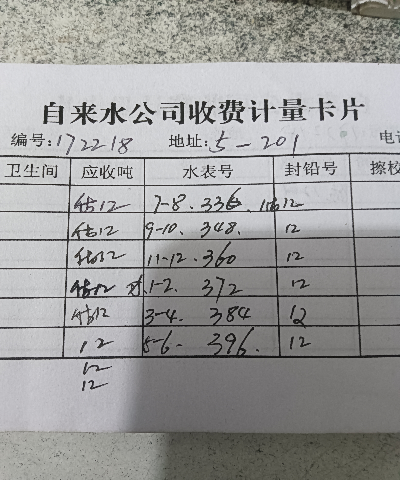 自来水公司收费计量卡片
编号:172218 地址:5-201 电
卫生间 应收吨 水表号 封铅号 擦校
估12 7-8. 336. 12
估12 9-10. 348. 12
估12 11-12. 360 12
估12 1-2. 372 12
估12 3-4. 384 12
12 5-6- 396. 12
12
12